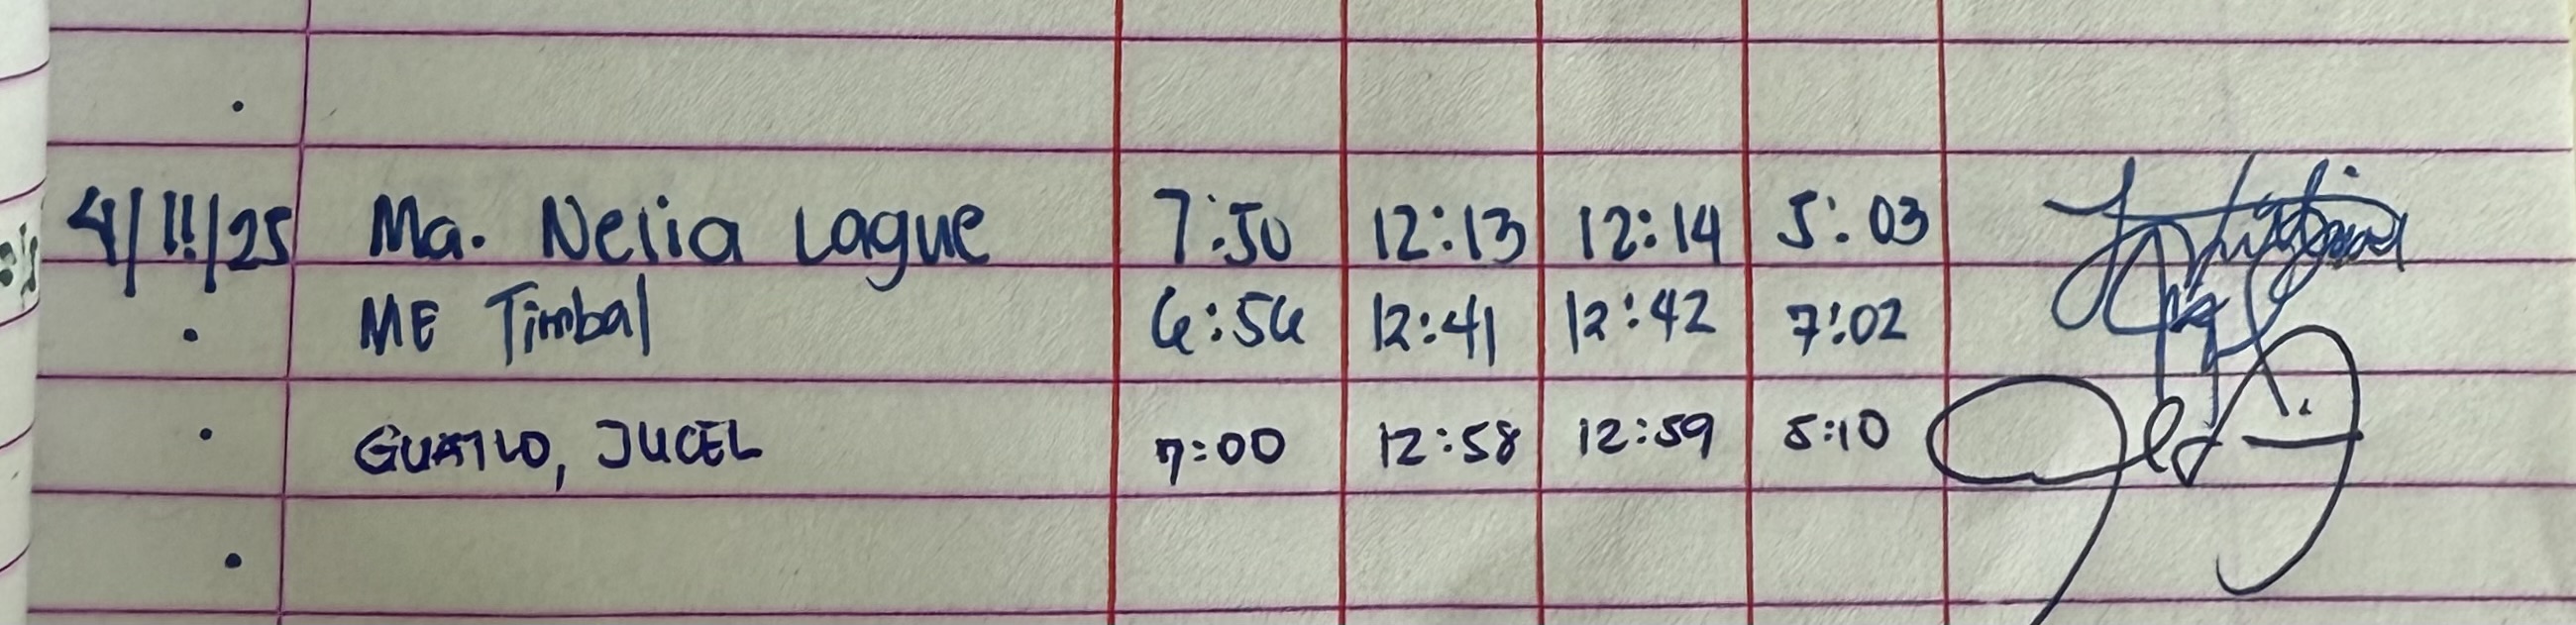 4/11/25 Ma. Nelia Lague 7:50 12:13 12:14 5:03
ME Timbal 6:56 12:41 12:42 7:02
JUCEL 7:00 12:58 12:59 5:10